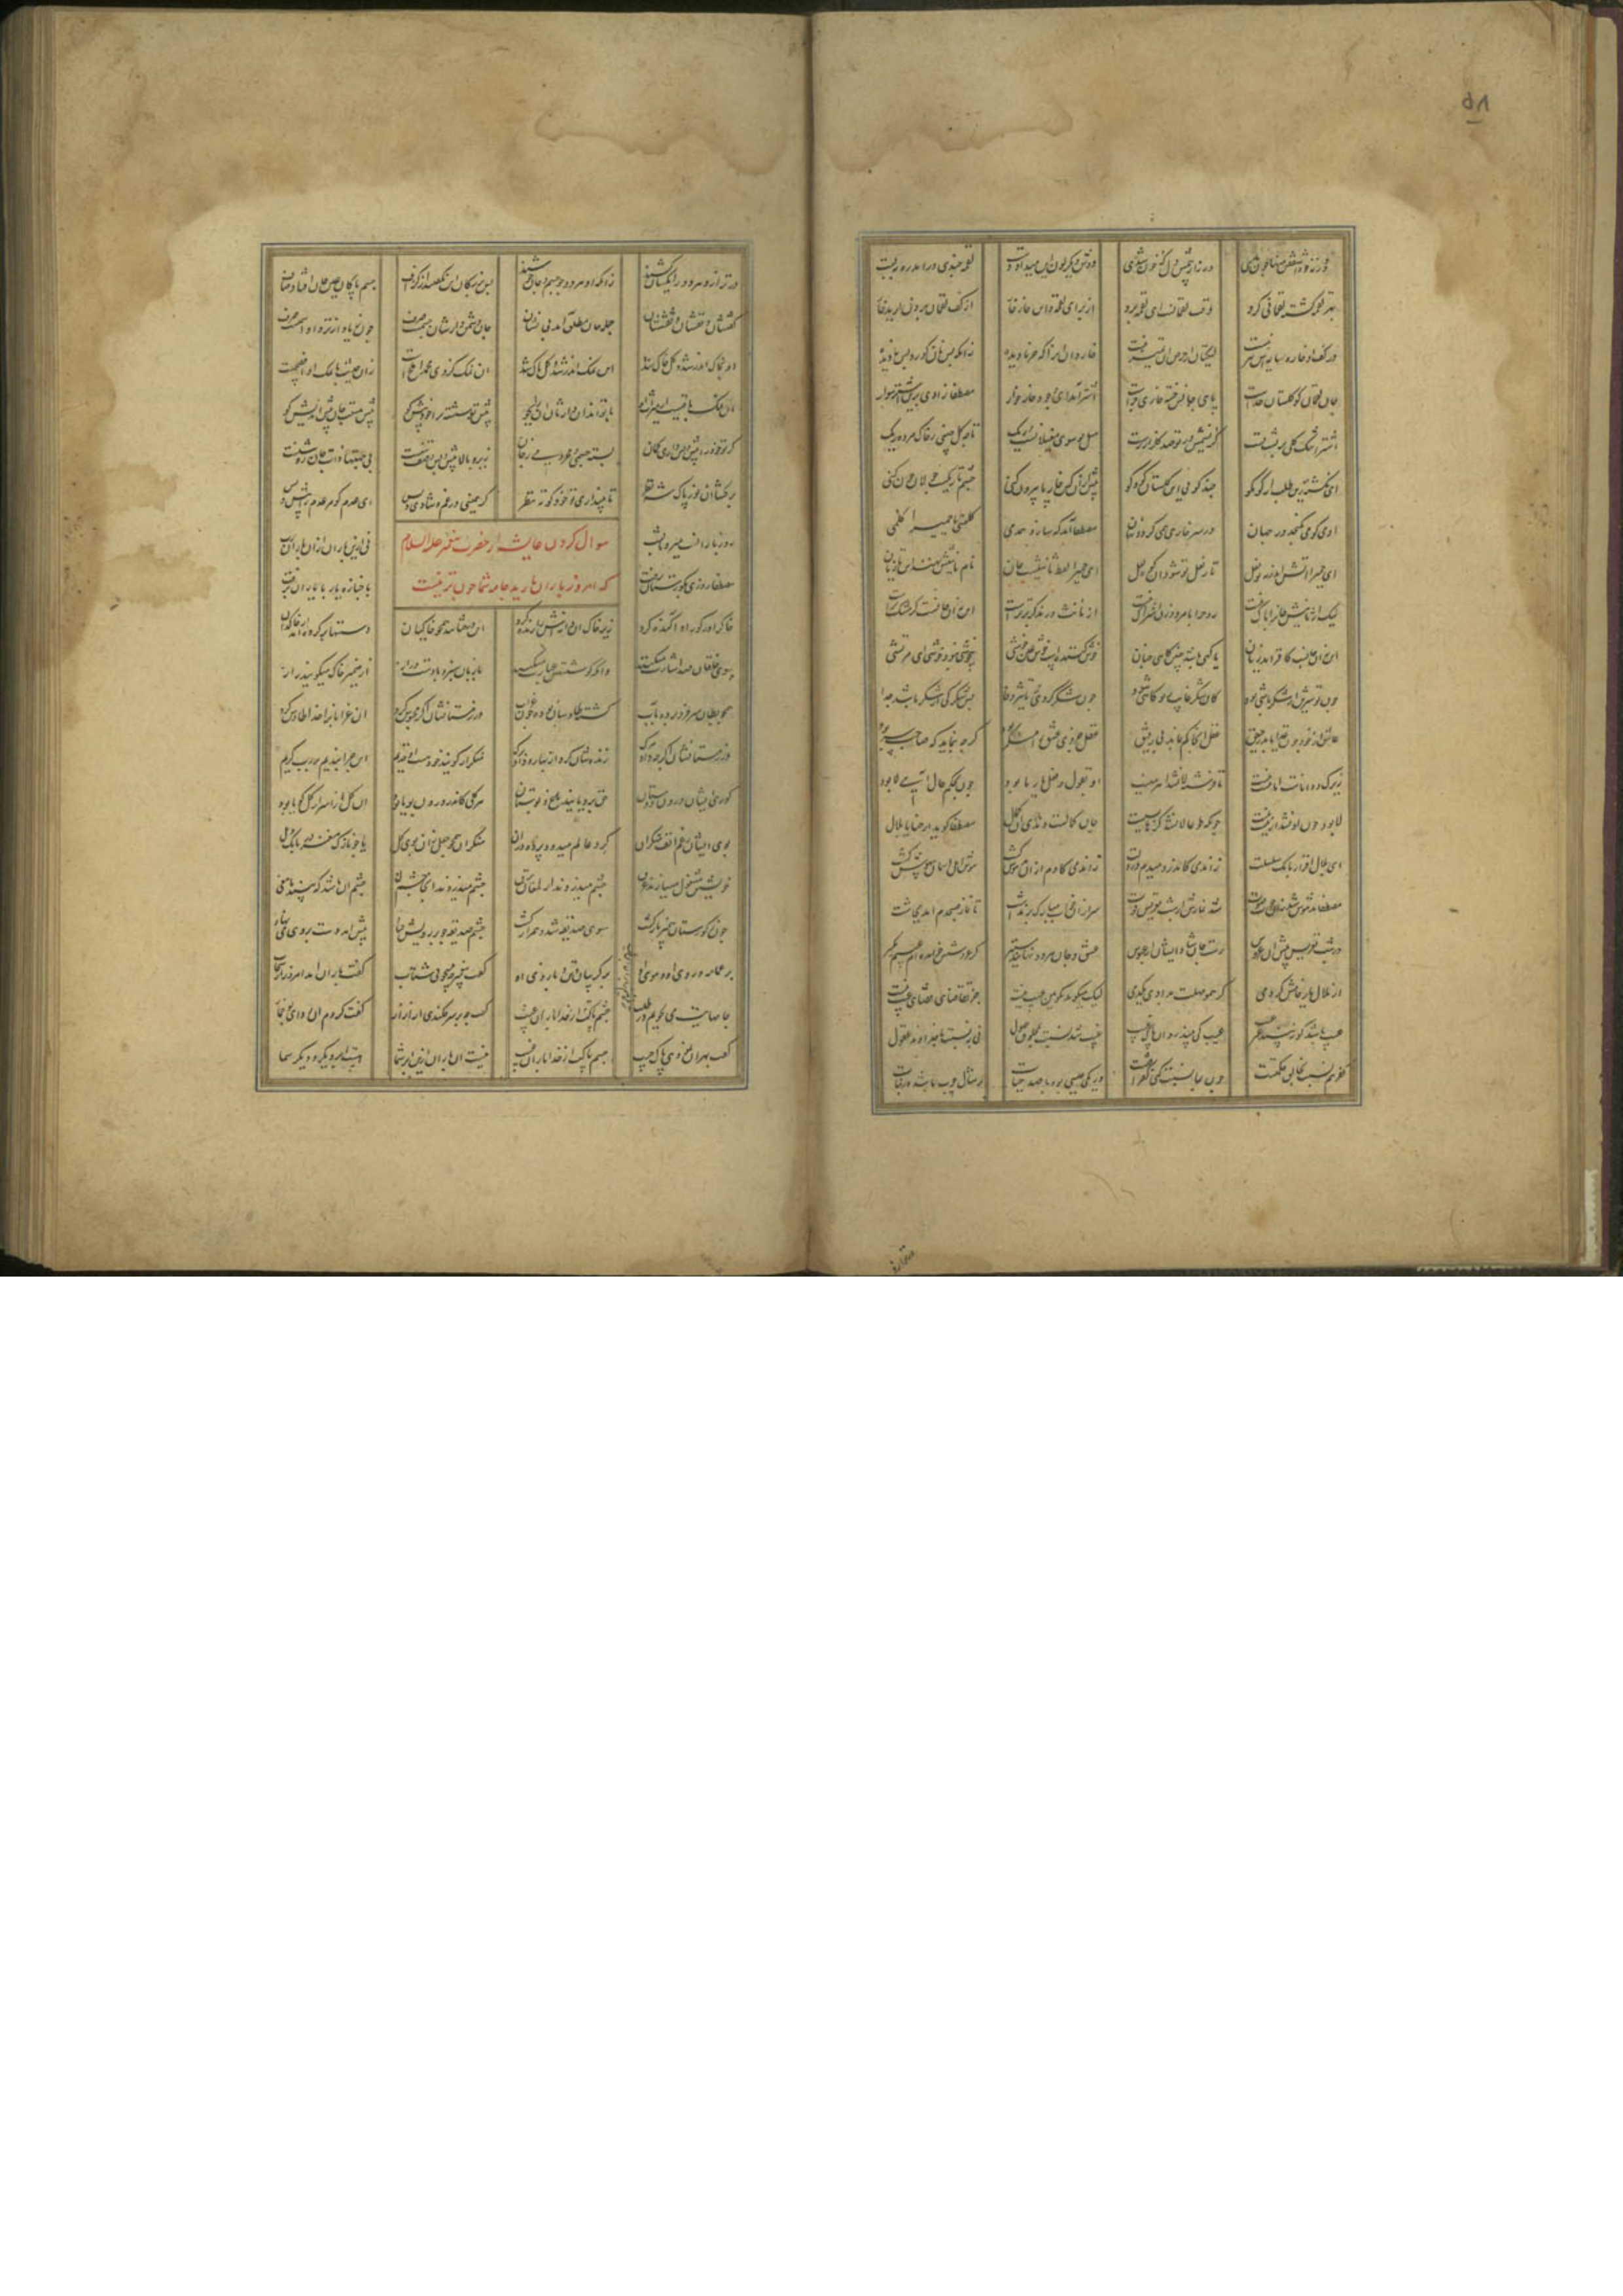 دوش دیگر لون این میداد دست لقمه چندی درآمد ره ببست
بهر لقمه گشته لقمانی گرو وقت لقمانست ای لقمه برو از برای لقمه این خار خار از کف لقمان برون آرید خار
در کف او خار و سایه اش نیز نیست لیکتان از حرص آن تمییز نیست خار دان آنرا که خرما دیده زانکه بس نان کور و بس نادیده
جان لقمان کو گلستان خداست پای جانش خسته خاری چراست اشتر آمد این وجود خار خوار مصطفا زادی برین اشتر سوار
اشترا تنگ گلی بر پشت تست کز نسیمش در تو صد گلزار رست میل تو سوی مغیلانست و ریگ تا چه گل چینی ز خاک مرده ریگ
ای بگشته زین طلب از کو بکو چند گویی این گلستان کو و کو پیش ازان کین خار پا بیرون کنی چشم تاریکست جولان چون کنی
آدمی کو می نگنجد در جهان در سر خاری همی گردد نهان مصطفا آمد که سازد همدمی کلمینی یا حمیرا کلمی
ای حمیرا آتش اندر نه تو نعل تا ز نعل تو شود این کوه لعل این حمیرا لفظ تانیثست و جان نام تانیثش نهند این تازیان
لیک از تانیث جانرا باک نیست روح را با مرد و زن اشراک نیست از مونث وز مذکر برترست این نه آن جانست کز خشک و ترست
این نه آن جانست کافزاید ز نان یا گهی باشد چنین گاهی چنان خوش کننده است و خوش و عین خوشی بیخوشی نبود خوشی ای مرتشی
چون تو شیرین از شکر باشی بود کان شکر غایب ز تو گاهی شود چون شکر گردی ز تاثیر وفا پس شکر کی از شکر باشد جدا
عاشق از خود چون غذا یابد رحیق عقل آنجا گم بماند بی رفیق عقل جزوی عشق را منکر بود گرچه بنماید که صاحب سر بود
زیرک و داناست اما نیست نیست تا فرشته لا نشد اهرمنیست او بقول و فعل یار ما بود چون بحکم حال آیی لا بود
لا بود چون او نشد از هست نیست چونکه طوعا لا نشد کرها بسیست جان کمالست و ندای او کمال مصطفا گوید ارحنا یا بلال
ای بلال افراز بانگ سلسلت زان دمی کاندر دمیدم در دلت زان دمی کادم ازان مدهوش گشت هوش اهل آسمان بیهوش گشت
مصطفا بیخویش شد زان خوب صوت شد نمازش از شب تعریس فوت سر ازان خواب مبارک برنداشت تا نماز صبحدم آمد بچاشت
در شب تعریس پیش آن عروس یافت جان پاک ایشان دستبوس عشق و جان هر دو نهانند و ستیر گر عروسش خوانده ام عیبم مگیر
از ملال یار خامش کردمی گر همو مهلت بدادی یکدمی لیک میگوید بگو هین عیب نیست جز تقاضای قضای غیب نیست
عیب باشد کو نبیند جز که عیب عیب کی بیند روان پاک غیب عیب شد نسبت بمخلوق جهول نی بنسبت با خداوند قبول
کفر هم نسبت بخالق حکمتست چون بما نسبت کنی کفر آفتست ور یکی عیبی بود با صد حیات بر مثال چوب باشد در نبات
در ترازو هر دو را یکسان کشند زانکه آن هر دو چو جسم و جان خوشند پس بزرگان این نگفتند از گزاف جسم پاکان عین جان افتاد صاف
گفتشان و نفسشان و نقششان جمله جان مطلق آمد بی نشان جان دشمن دارشان جسمست صرف چون زیاد از نرد او اسمست صرف
آن بخاک اندر شد و کل خاک شد این نمک اندر شد و کل پاک شد آن نمک کز وی محمد املحست زان حدیث با نمک او افصحست
این نمک باقیست از میراث او با تواند آن وارثان او بجو پیش تو شسته ترا خود پیش کو پیش هستت جان پیش اندیش کو
گر تو خود را پیش و پس داری گمان بسته جسمی و محرومی ز جان زیر و بالا پیش و پس وصف تنست بی جهتها ذات جان روشنست
برگشا از نور پاک شه نظر تا نپنداری تو خود کوته نظر که همینی در غم و شادی و بس ای عدم کو مر عدم را پیش و پس
روز بارانست میرو تا بشب نی ازین باران ازان باران رب
سوال کردن عایشه از حضرت پیغمبر علیه السلام
که امروز باران بارید جامه شما چون تر نیست
مصطفا روزی بگورستان برفت با جنازه یار با یاران برفت
خاک را در گور او آگنده کرد زیر خاک آن دانه اش را زنده کرد این درختانند همچو خاکیان دستها بر کرده اند از خاکدان
سوی خلقان صد اشارت میکنند وانکه گوشستش عبارت میکنند با زبان سبز و با دست دراز از ضمیر خاک میگویند راز
همچو بطان سر فرو برده بآب گشته طاوسان و بوده چون غراب در زمستانشان اگر محبوس کرد آن غرابانرا خدا طاوس کرد
در زمستانشان اگرچه داد مرگ زنده شان کرد از بهار و داد برگ منکران گویند خود هست این قدیم این چرا بندیم بر رب کریم
کوری ایشان درون دوستان حق برویانید باغ و بوستان هر گلی کاندر درون بویا بود آن گل از اسرار کل گویا بود
بوی ایشان رغم انف منکران گرد عالم میرود پرده دران منکران همچو جعل زان بوی گل یا چو نازک مغز در بانگ دهل
خویشتن مشغول میسازند و غرق چشم میدزدند ازین لمعان برق چشم میدزدند و آنجا چشم نی چشم آن باشد که بیند مامنی
چون ز گورستان پیمبر بازگشت سوی صدیقه شد و همراز گشت چشم صدیقه چو بر رویش فتاد پیش آمد دست بر وی می نهاد
بر عمامه و روی او و موی او بر گریبان و تن و بازوی او گفت پیغمبر چه میجویی شتاب گفت باران آمد امروز از سحاب
جامهایت می بجویم در طلب گفت چه بر سر فکندی از ازار گفت کردم آن ردای تو خمار
گفت بهر آن نمود ای پاک جیب چشم پاکت را خدا باران غیب نیست آن باران ازین ابر شما هست ابر دیگر و دیگر سما